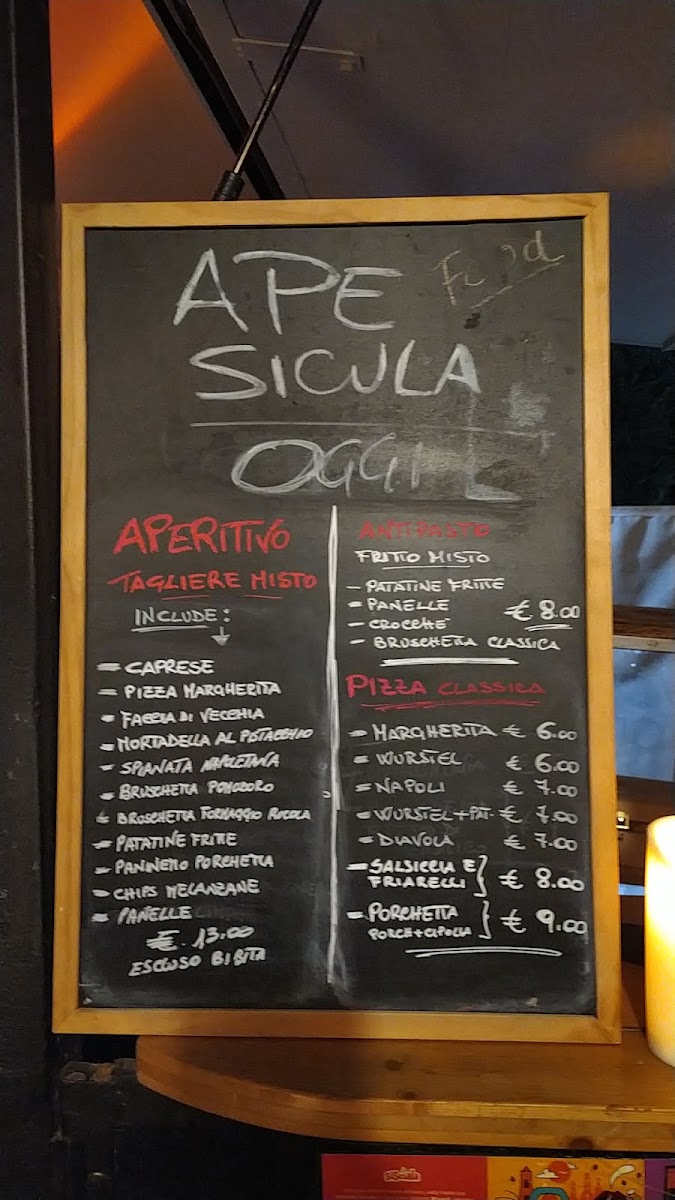 APE Food
SICULA
OGGI
APERITIVO
TAGLIERE MISTO
INCLUDE:
- CAPRESE
- PIZZA MARGHERITA
- FACCIA DI VECCHIA
- MORTADELLA AL PISTACCHIO
- SPIANATA NAPOLETANA
- BRUSCHETTA POMODORO
- BROSCHETTA FORMAGGIO RUCOLA
- PATATINE FRITTE
- PANINETTO PORCHETTA
- CHIPS MELANZANE
- PANELLE
€. 13.00
ESCLUSO BIBITA
ANTIPASTO
FRITTO MISTO
- PATATINE FRITTE
- PANELLE € 8.00
- CROCCHÈ
- BRUSCHETTA CLASSICA
PIZZA CLASSICA
- MARGHERITA € 6.00
- WURSTEL € 6.00
- NAPOLI € 7.00
- WURSTEL + PAT. € 7.00
- DIAVOLA € 7.00
- SALSICCIA E
FRIARELLI } € 8.00
- PORCHETTA
PORCH + CIPOLLA } € 9.00